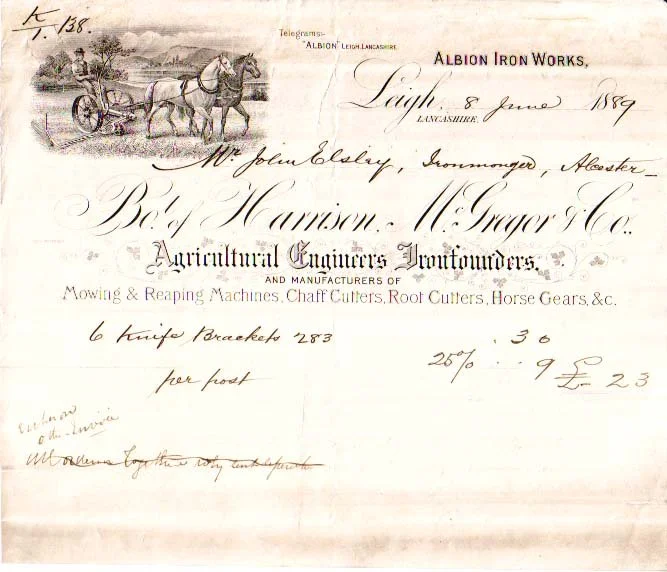 K/1. 138.
Telegrams:-
"ALBION" LEIGH, LANCASHIRE
ALBION IRON WORKS,
Leigh, 8 June 1889
LANCASHIRE.
Mr. John Elsley, Ironmonger, Alcester
Bot. of Harrison, McGregor & Co.,
Agricultural Engineers Ironfounders,
AND MANUFACTURERS OF
Mowing & Reaping Machines, Chaff Cutters, Root Cutters, Horse Gears, &c.
6 Knife Brackets 283 . 3 0
25% .. 9 £- 2 3
per post
on
Invoice
orders together why